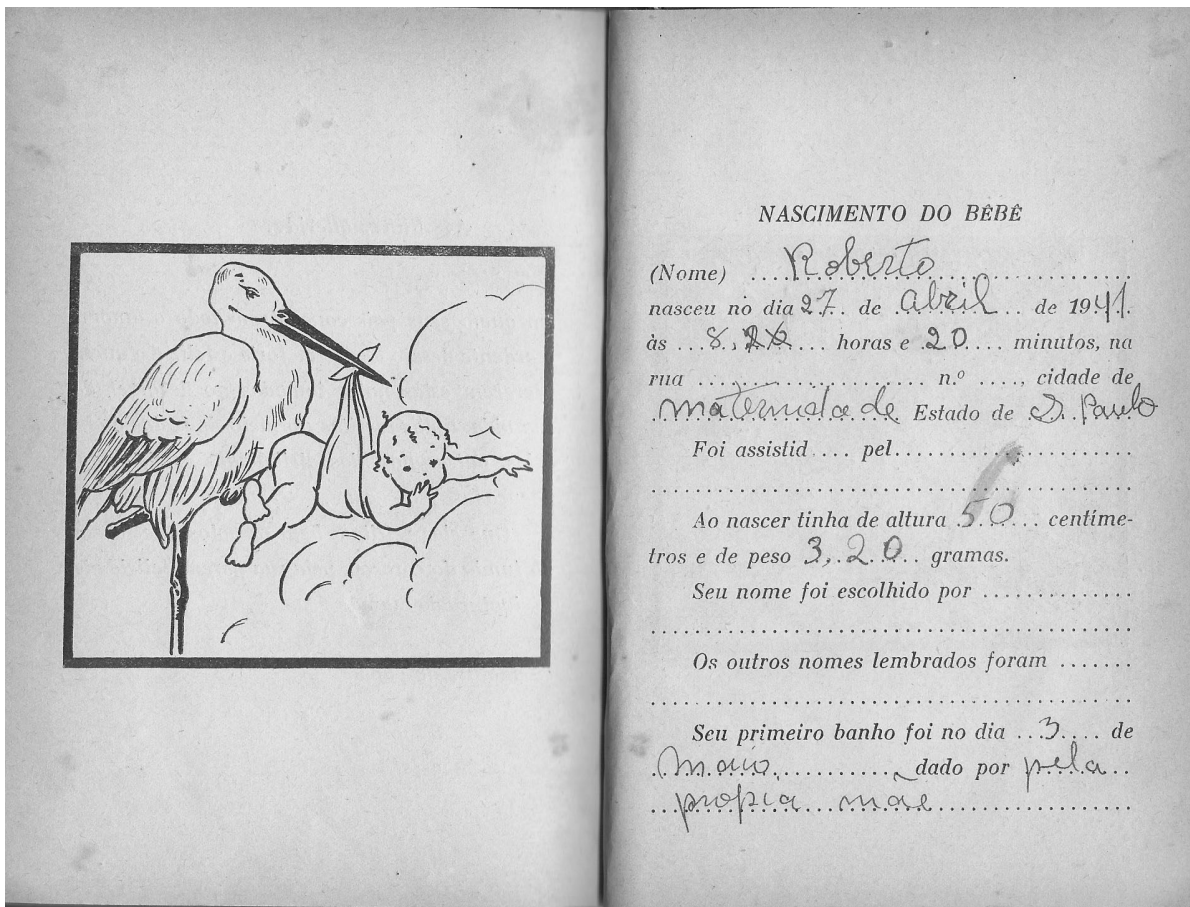 NASCIMENTO DO BÊBÊ
(Nome) .... Roberto ....................
nasceu no dia 27. de abril ... de 1941.
às ... 8, .... horas e 20 .... minutos, na
rua ...................... n.º ...., cidade de
maternidade. Estado de S. Paulo
Foi assistid .... pel........................
..............................................
Ao nascer tinha de altura 50 ... centíme-
tros e de peso 3,20 .. gramas.
Seu nome foi escolhido por .............
..............................................
Os outros nomes lembrados foram .......
..............................................
Seu primeiro banho foi no dia ...3.... de
maio, .......... dado por pela ..
propia mãe ....................